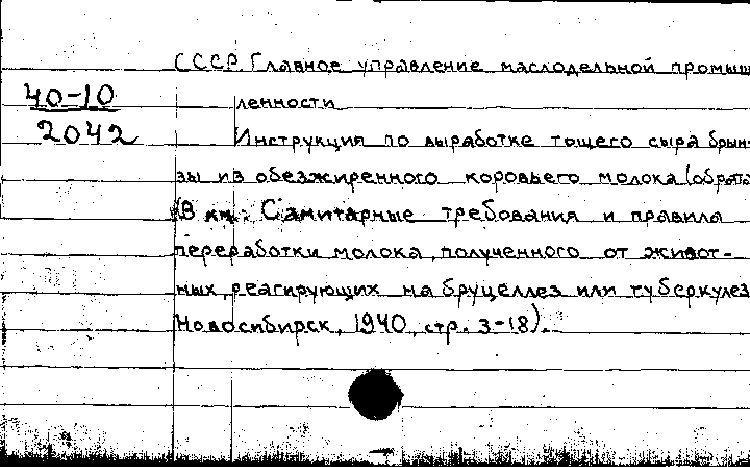 СССР. Главное управление маслодельной промыш
40-10
2042
ленности
Инструкция по выработке тощего сыра брын-
зы из обезжиренного коровьего молока (обрата
(В кн.: Санитарные требования и правила
переработки молока, полученного от живот-
ных, реагирующих на бруцеллез или туберкулез
Новосибирск, 1940, стр. 3-18).